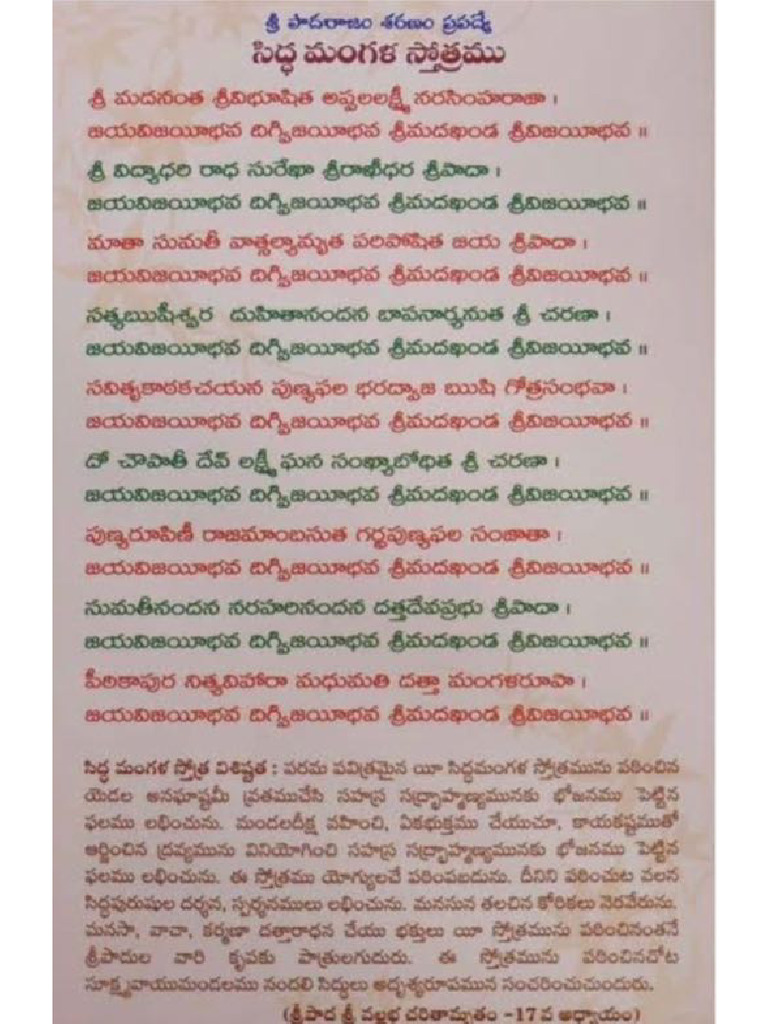 శ్రీ పాదరాజం శరణం ప్రపద్యే
సిద్ధ మంగళ స్తోత్రము
శ్రీ మదనంత శ్రీవిభూషిత అప్పలలక్ష్మీ నరసింహరాజా ।
జయవిజయీభవ దిగ్విజయీభవ శ్రీమదఖండ శ్రీవిజయీభవ ॥
శ్రీ విద్యాధరి రాధ సురేఖా శ్రీరాఖీధర శ్రీపాదా ।
జయవిజయీభవ దిగ్విజయీభవ శ్రీమదఖండ శ్రీవిజయీభవ ॥
మాతా సుమతీ వాత్సల్యామృత పరిపోషిత జయ శ్రీపాదా ।
జయవిజయీభవ దిగ్విజయీభవ శ్రీమదఖండ శ్రీవిజయీభవ ॥
సత్యఋషీశ్వర దుహితానందన బాపనార్యనుత శ్రీ చరణా ।
జయవిజయీభవ దిగ్విజయీభవ శ్రీమదఖండ శ్రీవిజయీభవ ॥
సవితృకాఠకచయన పుణ్యఫల భరద్వాజ ఋషి గోత్రసంభవా ।
జయవిజయీభవ దిగ్విజయీభవ శ్రీమదఖండ శ్రీవిజయీభవ ॥
దో చౌపాతీ దేవ్ లక్ష్మీ ఘన సంఖ్యాబోధిత శ్రీ చరణా ।
జయవిజయీభవ దిగ్విజయీభవ శ్రీమదఖండ శ్రీవిజయీభవ ॥
పుణ్యరూపిణీ రాజమాంబసుత గర్భపుణ్యఫల సంజాతా ।
జయవిజయీభవ దిగ్విజయీభవ శ్రీమదఖండ శ్రీవిజయీభవ ॥
సుమతీనందన నరహరినందన దత్తదేవప్రభు శ్రీపాదా ।
జయవిజయీభవ దిగ్విజయీభవ శ్రీమదఖండ శ్రీవిజయీభవ ॥
పీఠికాపుర నిత్యవిహారా మధుమతి దత్తా మంగళరూపా ।
జయవిజయీభవ దిగ్విజయీభవ శ్రీమదఖండ శ్రీవిజయీభవ ॥
సిద్ధ మంగళ స్తోత్ర విశిష్టత : పరమ పవిత్రమైన యీ సిద్ధమంగళ స్తోత్రమును పఠించిన
యెడల అనఘాష్టమీ వ్రతముచేసి సహస్ర సద్బ్రాహ్మణ్యమునకు భోజనము పెట్టిన
ఫలము లభించును. మండలదీక్ష వహించి, ఏకభుక్తము చేయుచూ, కాయకష్టముతో
ఆర్జించిన ద్రవ్యమును వినియోగించి సహస్ర సద్బ్రాహ్మణ్యమునకు భోజనము పెట్టిన
ఫలము లభించును. ఈ స్తోత్రము యోగ్యులచే పఠింపబడును. దీనిని పఠించుట వలన
సిద్ధపురుషుల దర్శన, స్పర్శనములు లభించును. మనసున తలచిన కోరికలు నెరవేరును.
మనసా, వాచా, కర్మణా దత్తారాధన చేయు భక్తులు యీ స్తోత్రమును పఠించినంతనే
శ్రీపాదుల వారి కృపకు పాత్రులగుదురు. ఈ స్తోత్రమును పఠించినచోట
సూక్ష్మవాయుమండలము నందలి సిద్ధులు అదృశ్యరూపమున సంచరించుచుందురు.
(శ్రీపాద శ్రీ వల్లభ చరితామృతం -17 వ అధ్యాయం)